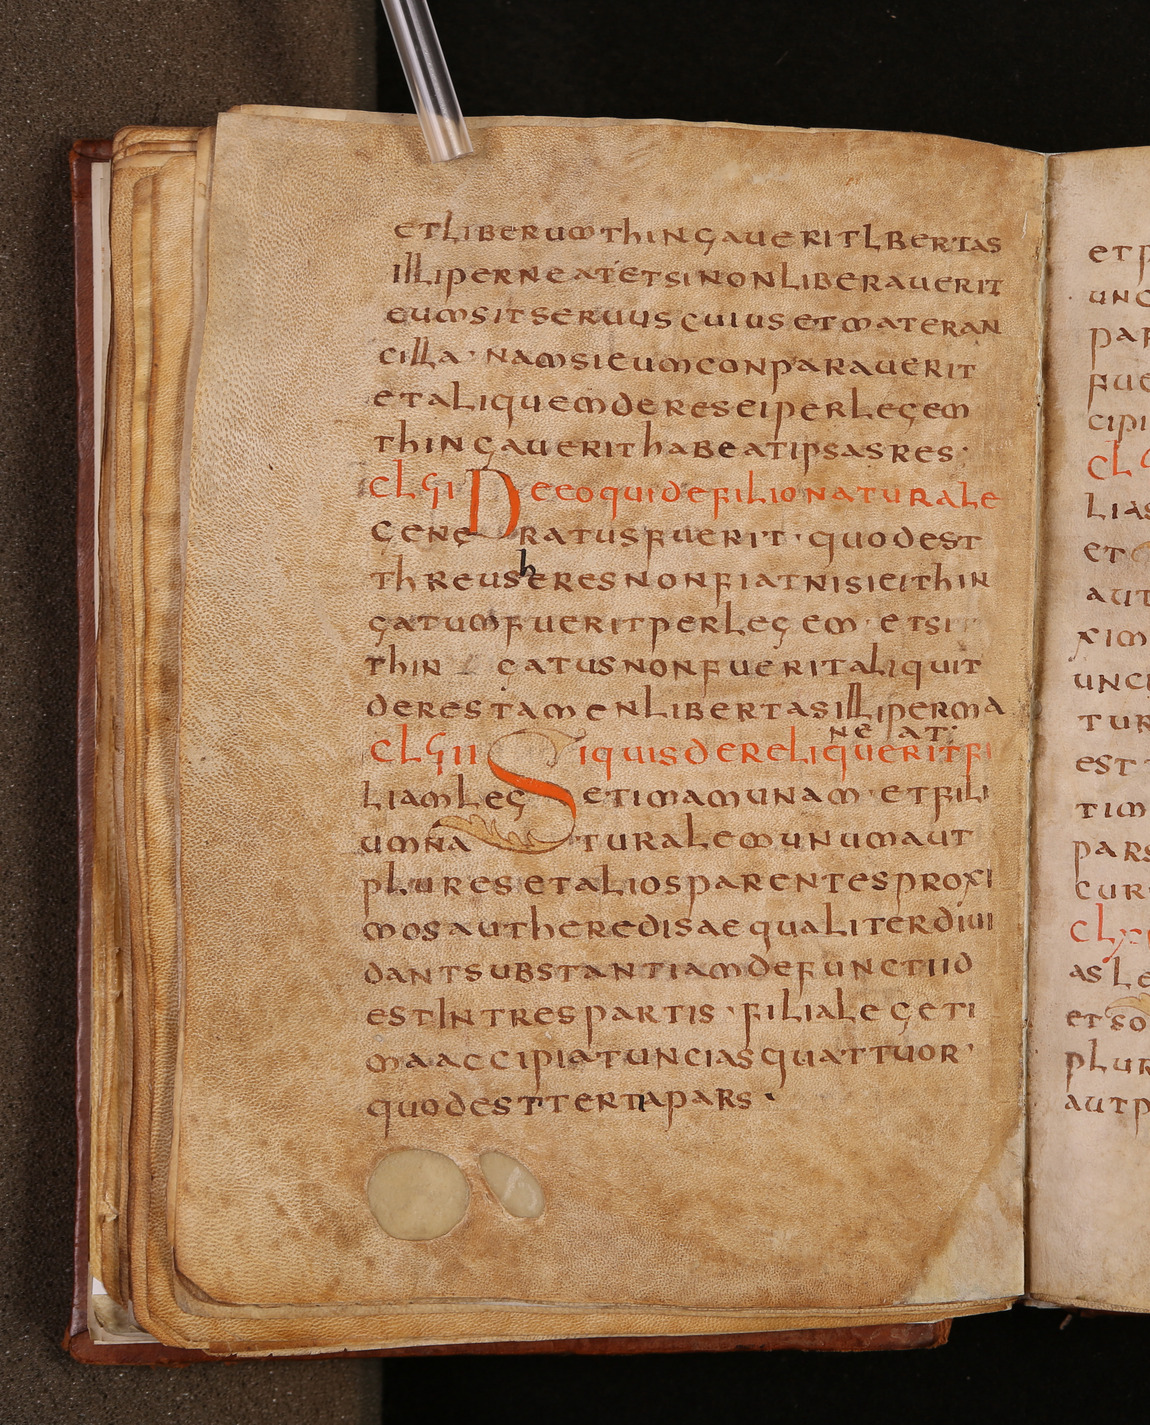 et liberum thingauerit lbertas
illi perneat et si non liberauerit
eum sit seruus cuius et mater an
cilla · nam si eum conparauerit
et aliquem de res ei per legem
thingauerit habeat ipsas res ·
CLGI De eo qui de filio naturale
generatus fuerit · quod est
threus heres non fiat nisi ei thin
gatum fuerit per legem · et si
thin gatus non fuerit aliquit
de res tamen libertas illi perma
neat ·
CLGII Si quis dereliquerit fi
liam legetimam unam · et fili
um naturalem unum aut
plures et alios parentes proxi
mos aut heredis aequaliter diui
dant substantiam defuncti id
est in tres partis · filia legeti
ma accipiat uncias quattuor ·
quod est tertia pars ·
et
unc
par
fue
cipi
CL
lias
et
aut
xim
unci
tur
est
tim
pars
cur
CL
as le
et so
plur
aut p